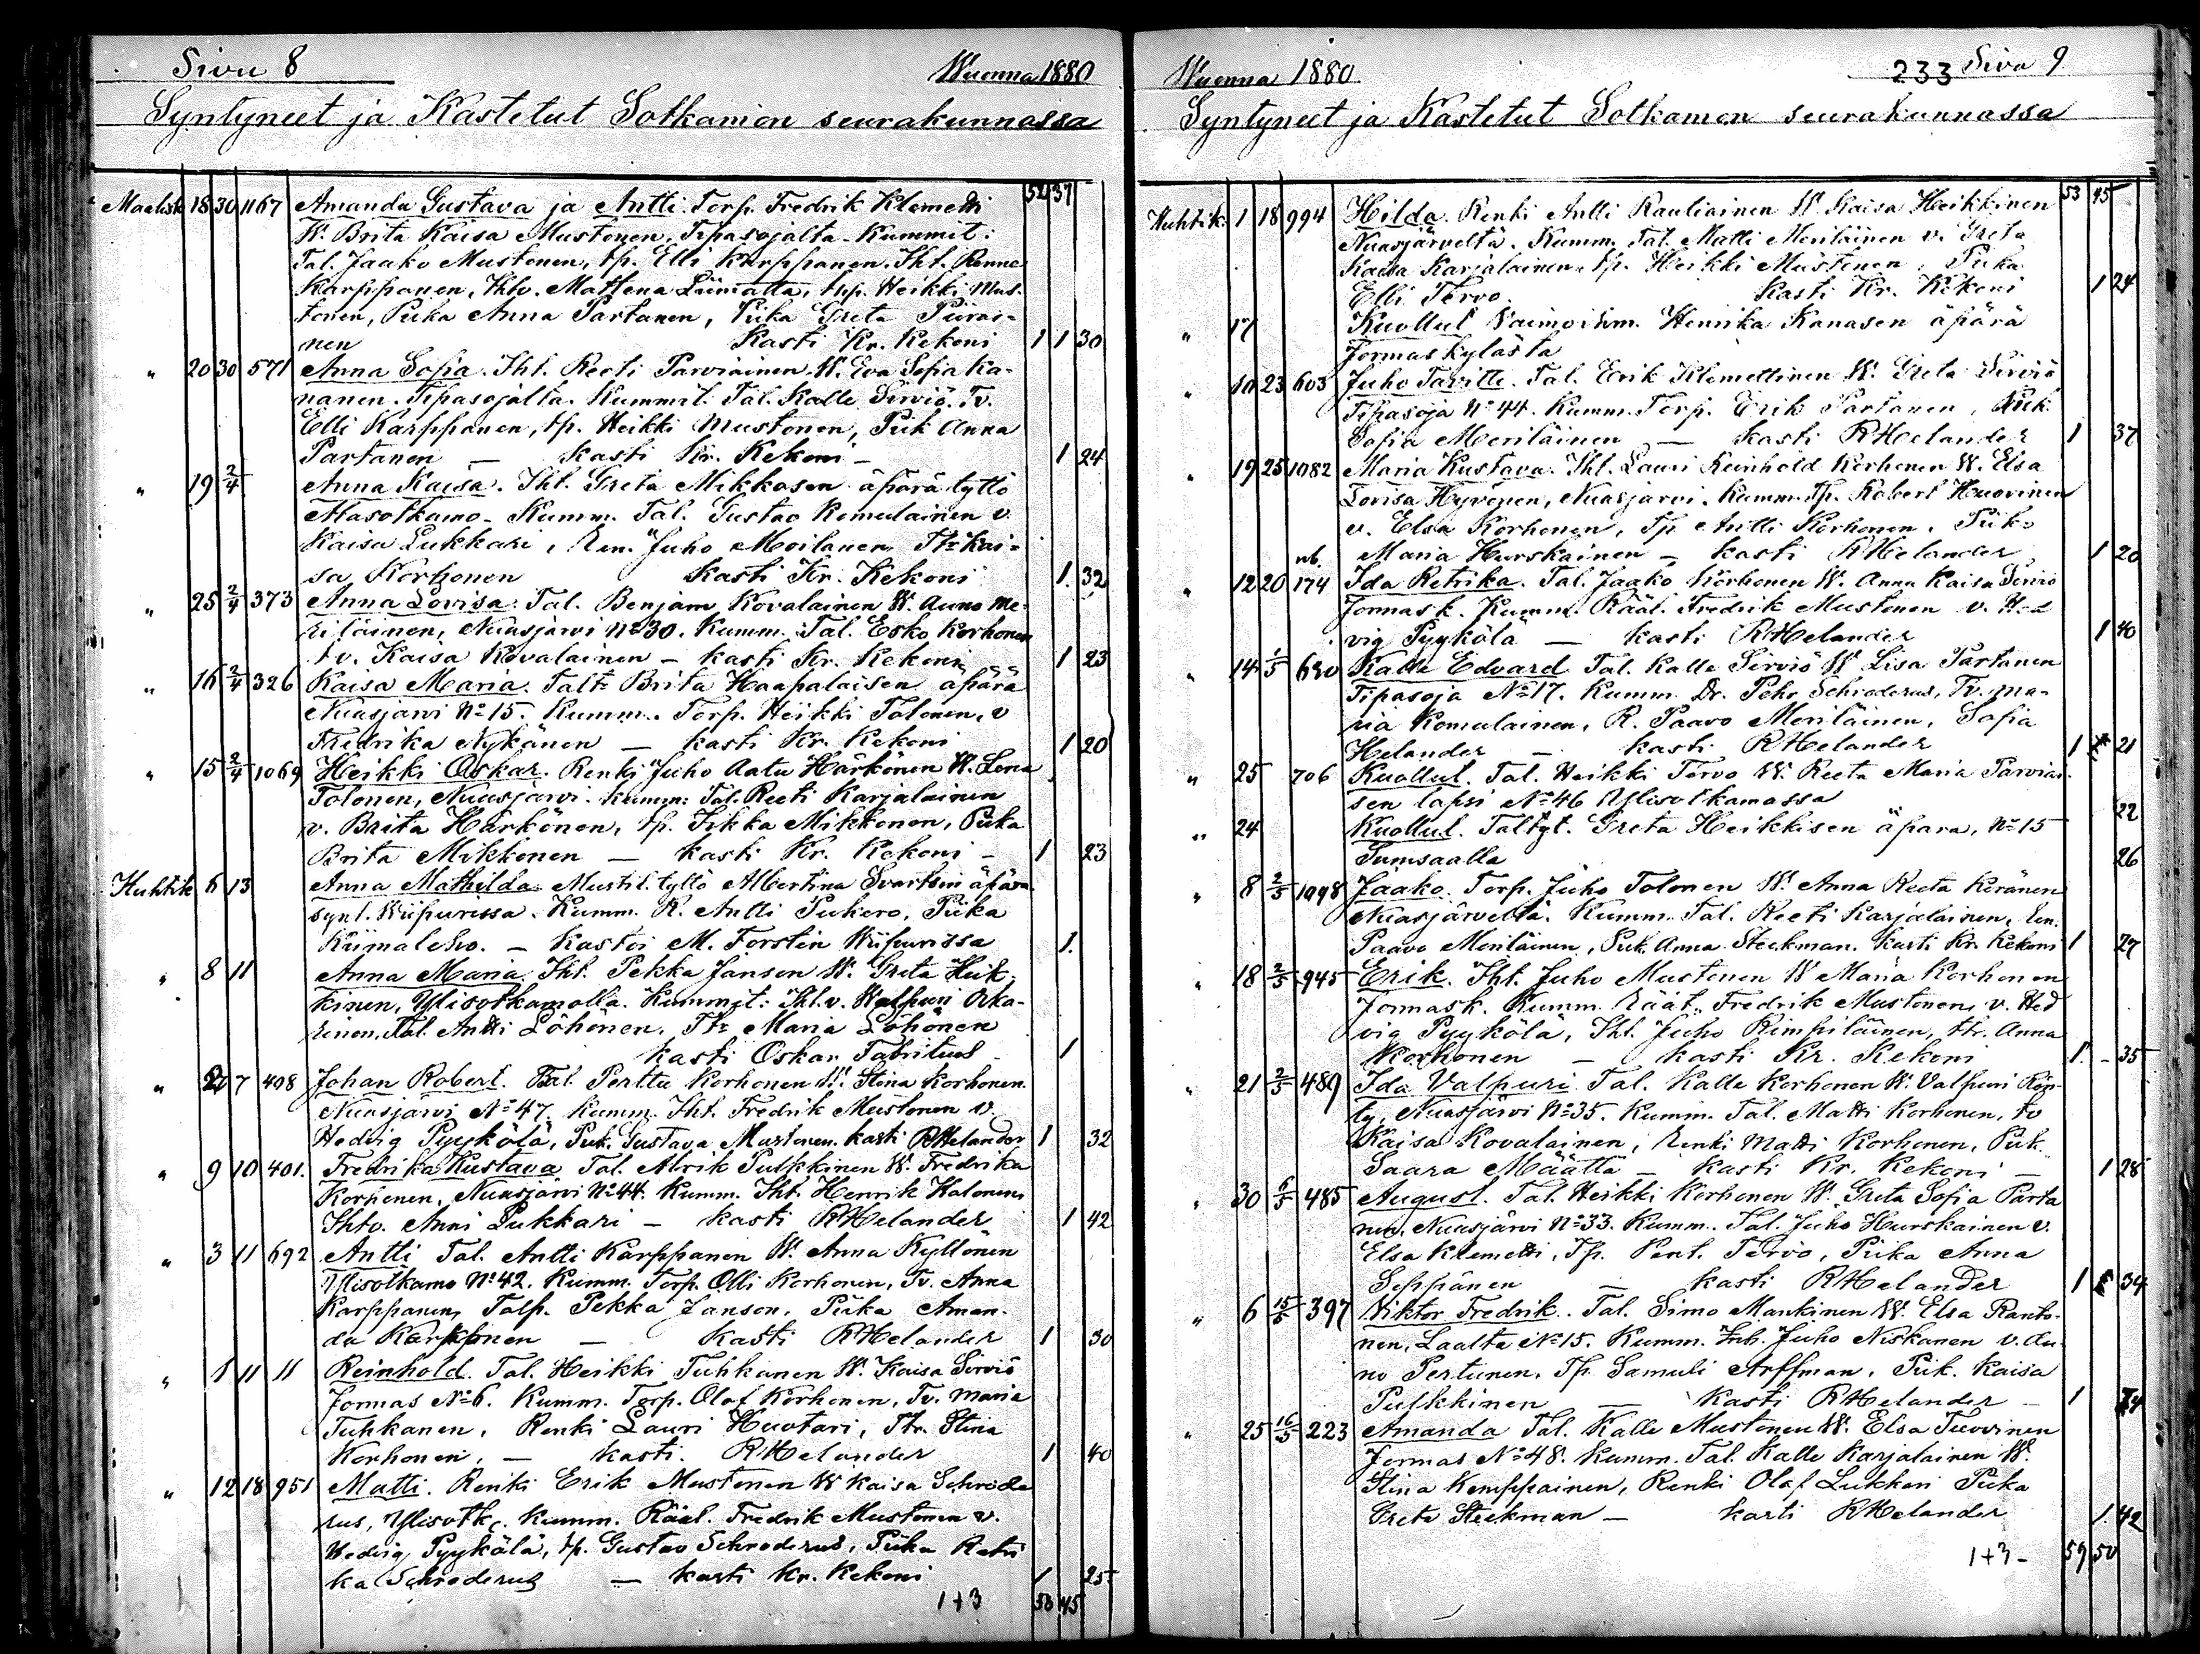 Sivu 8 Wuonna 1880
Syntyneet ja Kastetut Sotkamon seurakunnassa
52 37
Maalisk 18 30 1167 Amanda Gustava ja Antti. Torp. Fredrik Klemetti
W. Brita Kaisa Mustonen, Tipasojalta. Kummit:
Tal. Jaako Mustonen, tp. Elli Karppanen. Iht.
Karppanen, Ihtv. Mathena Liimatta, tnp. Heikki Mus-
tonen, Piika Anna Partanen, Piika Greta Piirai-
nen Kasti Kr. Kekoni 1 1 30
" 20 30 571 Anna Sofia. Iht. Reeti Parviainen W. Eva Sofia Ka-
nanen. Tipasojalta. Kummit Tal. Kalle Sirviö. Tv.
Elli Karppanen, tp. Heikki Mustonen, Piik Anna
Partanen — kasti Kr. Kekoni — 1 24
" 19 2/4 Anna Kaisa. Iht. Greta Mikkosen äpärä tyttö
Alasotkamo. Kumm. Tal. Gustav Komulainen v.
Kaisa Lukkari, Ren. Juho Moilanen, Ttr Kai-
sa Korhonen kasti Kr. Kekoni 1. 32
" 25 2/4 373 Anna Lovisa. Tal. Benjam Kovalainen W. Anna Me-
riläinen, Nuasjärvi No 30. Kumm. Tal. Esko Korhonen
tv. Kaisa Kovalainen — kasti Kr. Kekoni 1 23
" 16 2/4 326 Kaisa Maria. Taltr Brita Haapalaisen äpärä
Nuasjärvi No 15. Kumm. Torp. Heikki Tolonen, v
Fredrika Nykänen — kasti Kr. Kekoni 1 20
" 15 2/4 1069 Heikki Oskar. Renki Juho Aatu Härkönen W. Lena
Tolonen, Nuasjärvi. Kumm: Tal. Reeti Karjalainen
v. Brita Härkönen, tp. Iikka Mikkonen, Piika
Brita Mikkonen — kasti Kr. Kekoni — 1 23
Huhtik 6 13 Anna Mathilda. Mustil. tyttö Albertina Svartsin äpärä
synt. Wiipurissa. Kumm. R. Antti Pukero, Piika
Kiimaleho. — Kastoi M. Forstén Wiipurissa 1.
" 8 11 Anna Maria. Iht. Pekka Janson W. Greta Heik-
kinen, Ylisotkamolla. Kummit: Iht. v. Walpuri Oka-
rinen, Tal. Antti Löhönen, Ttr Maria Löhönen
kasti Oskar Fabritius — 1
" 7 408 Johan Robert. Tal. Perttu Korhonen W. Stina Korhonen
Nuasjärvi No 47. Kumm. Iht. Fredrik Mustonen v.
Hedvig Pyykölä, Piik. Gustava Mustonen. kasti RHelander 1 32
" 9 10 401. Fredrika Kustava Tal. Alrik Pulkkinen W. Fredrika
Korhonen, Nuasjärvi No 44. Kumm. Iht. Henrik Halonen
Ihtv. Anni Lukkari — kasti RHelander 1 42
" 3 11 692 Antti Tal. Antti Karppanen W. Anna Kyllönen
Ylisotkamo No 42. Kumm. Torp. Olli Korhonen, Tv. Anna
Karppanen, Talp. Pekka Janson, Piika Aman-
da Karppanen — kasti RHelander 1 30
" 1 11 11 Reinhold. Tal. Heikki Tuhkanen W. Kaisa Sirviö
Jormas No 6. Kumm. Torp. Olof Korhonen, Tv. Maria
Tuhkanen, Renki Lauri Huotari, Ttr. Stina
Korhonen, — kasti. RHelander 1 40
" 12 18 951 Matti. Renki Erik Mustonen W Kaisa Schrode
rus, Ylisotk. Kumm. Räät. Fredrik Mustonen v.
Hedvig Pyykölä, tp. Gustav Schroderus, Piika Retri
ka Schroderus — kasti Kr. Kekoni 1 25
1+3 58 45
Wuonna 1880 233 Sivu 9
Syntyneet ja Kastetut Sotkamon seurakunnassa
53 45
Huhtik. 1 18 994 Hilda. Renki Antti Rautiainen W. Kaisa Heikkinen
Nuasjärveltä. Kumm. Tal. Matti Meriläinen v. Greta
Kaisa Karjalainen, tp. Heikki Mustonen, Piika
Elli Tervo. Kasti Kr. Kekoni 1 24
" 17 Kuollut Vaimoihm. Henrika Kanasen äpärä
Jormaskylästä
" 10 23 603 Juho Taavitti. Tal. Erik Klemettinen W. Greta Sirviö
Tipasoja No 44. Kumm. Torp. Erik Partanen, Piik.
Sofia Meriläinen — kasti RHelander 1 37
" 19 25 1082 Maria Kustava. Iht. Lauri Reinhold Korhonen W. Elsa
Lovisa Hyvönen, Nuasjärvi. Kumm. Tp. Robert Huovinen
v. Elsa Korhonen, Tp Antti Korhonen, Piik.
nb. Maria Hurskainen — kasti RHelander 1 20
" 12 20 174 Ida Retrika. Tal. Jaako Korhonen W. Anna Kaisa Sirviö
Jormask. Kumm. Räät. Fredrik Mustonen v. Hed
vig Pyykölä — kasti RHelander 1 40
" 14 1/5 630 Kalle Edvard Tal. Kalle Sirviö W Lisa Partanen
Tipasoja No 17. Kumm. Dr. Pehr Schroderus, Tv. Ma-
ria Komulainen, R. Paavo Meriläinen, Sofia
Helander — kasti RHelander 1 21
" 25 706 Kuollut. Tal. Heikki Tervo W. Reeta Maria Parviai-
sen lapsi No 46 Ylisotkamossa 22
" 24 Kuollut. Taltyt. Greta Heikkisen äpärä, No 15
Sumsaalla 26
" 8 2/5 1098 Jaako. Torp. Juho Tolonen W. Anna Reeta Keränen
Nuasjärveltä. Kumm. Tal. Reeti Karjalainen, Ren.
Paavo Meriläinen, Piik. Anna Steckman. Kasti Kr. Kekoni 1 27
" 18 2/5 945 Erik. Iht. Juho Mustonen W Maria Korhonen
Jormask. Kumm. Räät. Fredrik Mustonen, v. Hed
vig Pyykölä, Iht. Juho Rimpiläinen, ttr. Anna
Korhonen — kasti Kr. Kekoni 1. - 35
" 21 2/5 489 Ida Valpuri Tal. Kalle Korhonen W. Valpuri Rön-
ty, Nuasjärvi No 35. Kumm. Tal. Matti Korhonen, tv
Kaisa Kovalainen, Renki Matti Korhonen, Piik.
Saara Määttä — kasti Kr. Kekoni — 1 28
" 30 6/5 485 August. Tal. Heikki Korhonen W. Greta Sofia Parta
nen, Nuasjärvi No 33. Kumm. Tal. Juho Hurskainen v.
Elsa Klemetti, Tp. Pent. Tervo, Piika Anna
Seppänen — kasti RHelander 1 34
" 6 15/5 397 Viktor Fredrik. Tal. Simo Mankinen W. Elsa Ranto-
nen, Laalta No 15. Kumm. Inb. Juho Niskanen v. An-
no Pertunen, Tp. Samuli Arffman, Piik. Kaisa
Pulkkinen — kasti RHelander — 1
" 25 16/5 223 Amanda Tal. Kalle Mustonen W. Elsa Tuovinen
Jormas No 48. Kumm. Tal. Kalle Karjalainen W.
Stina Kemppainen, Renki Olof Lukkari Piika
Greta Steckman — kasti RHelander 1. 42
1+3 - 59 50